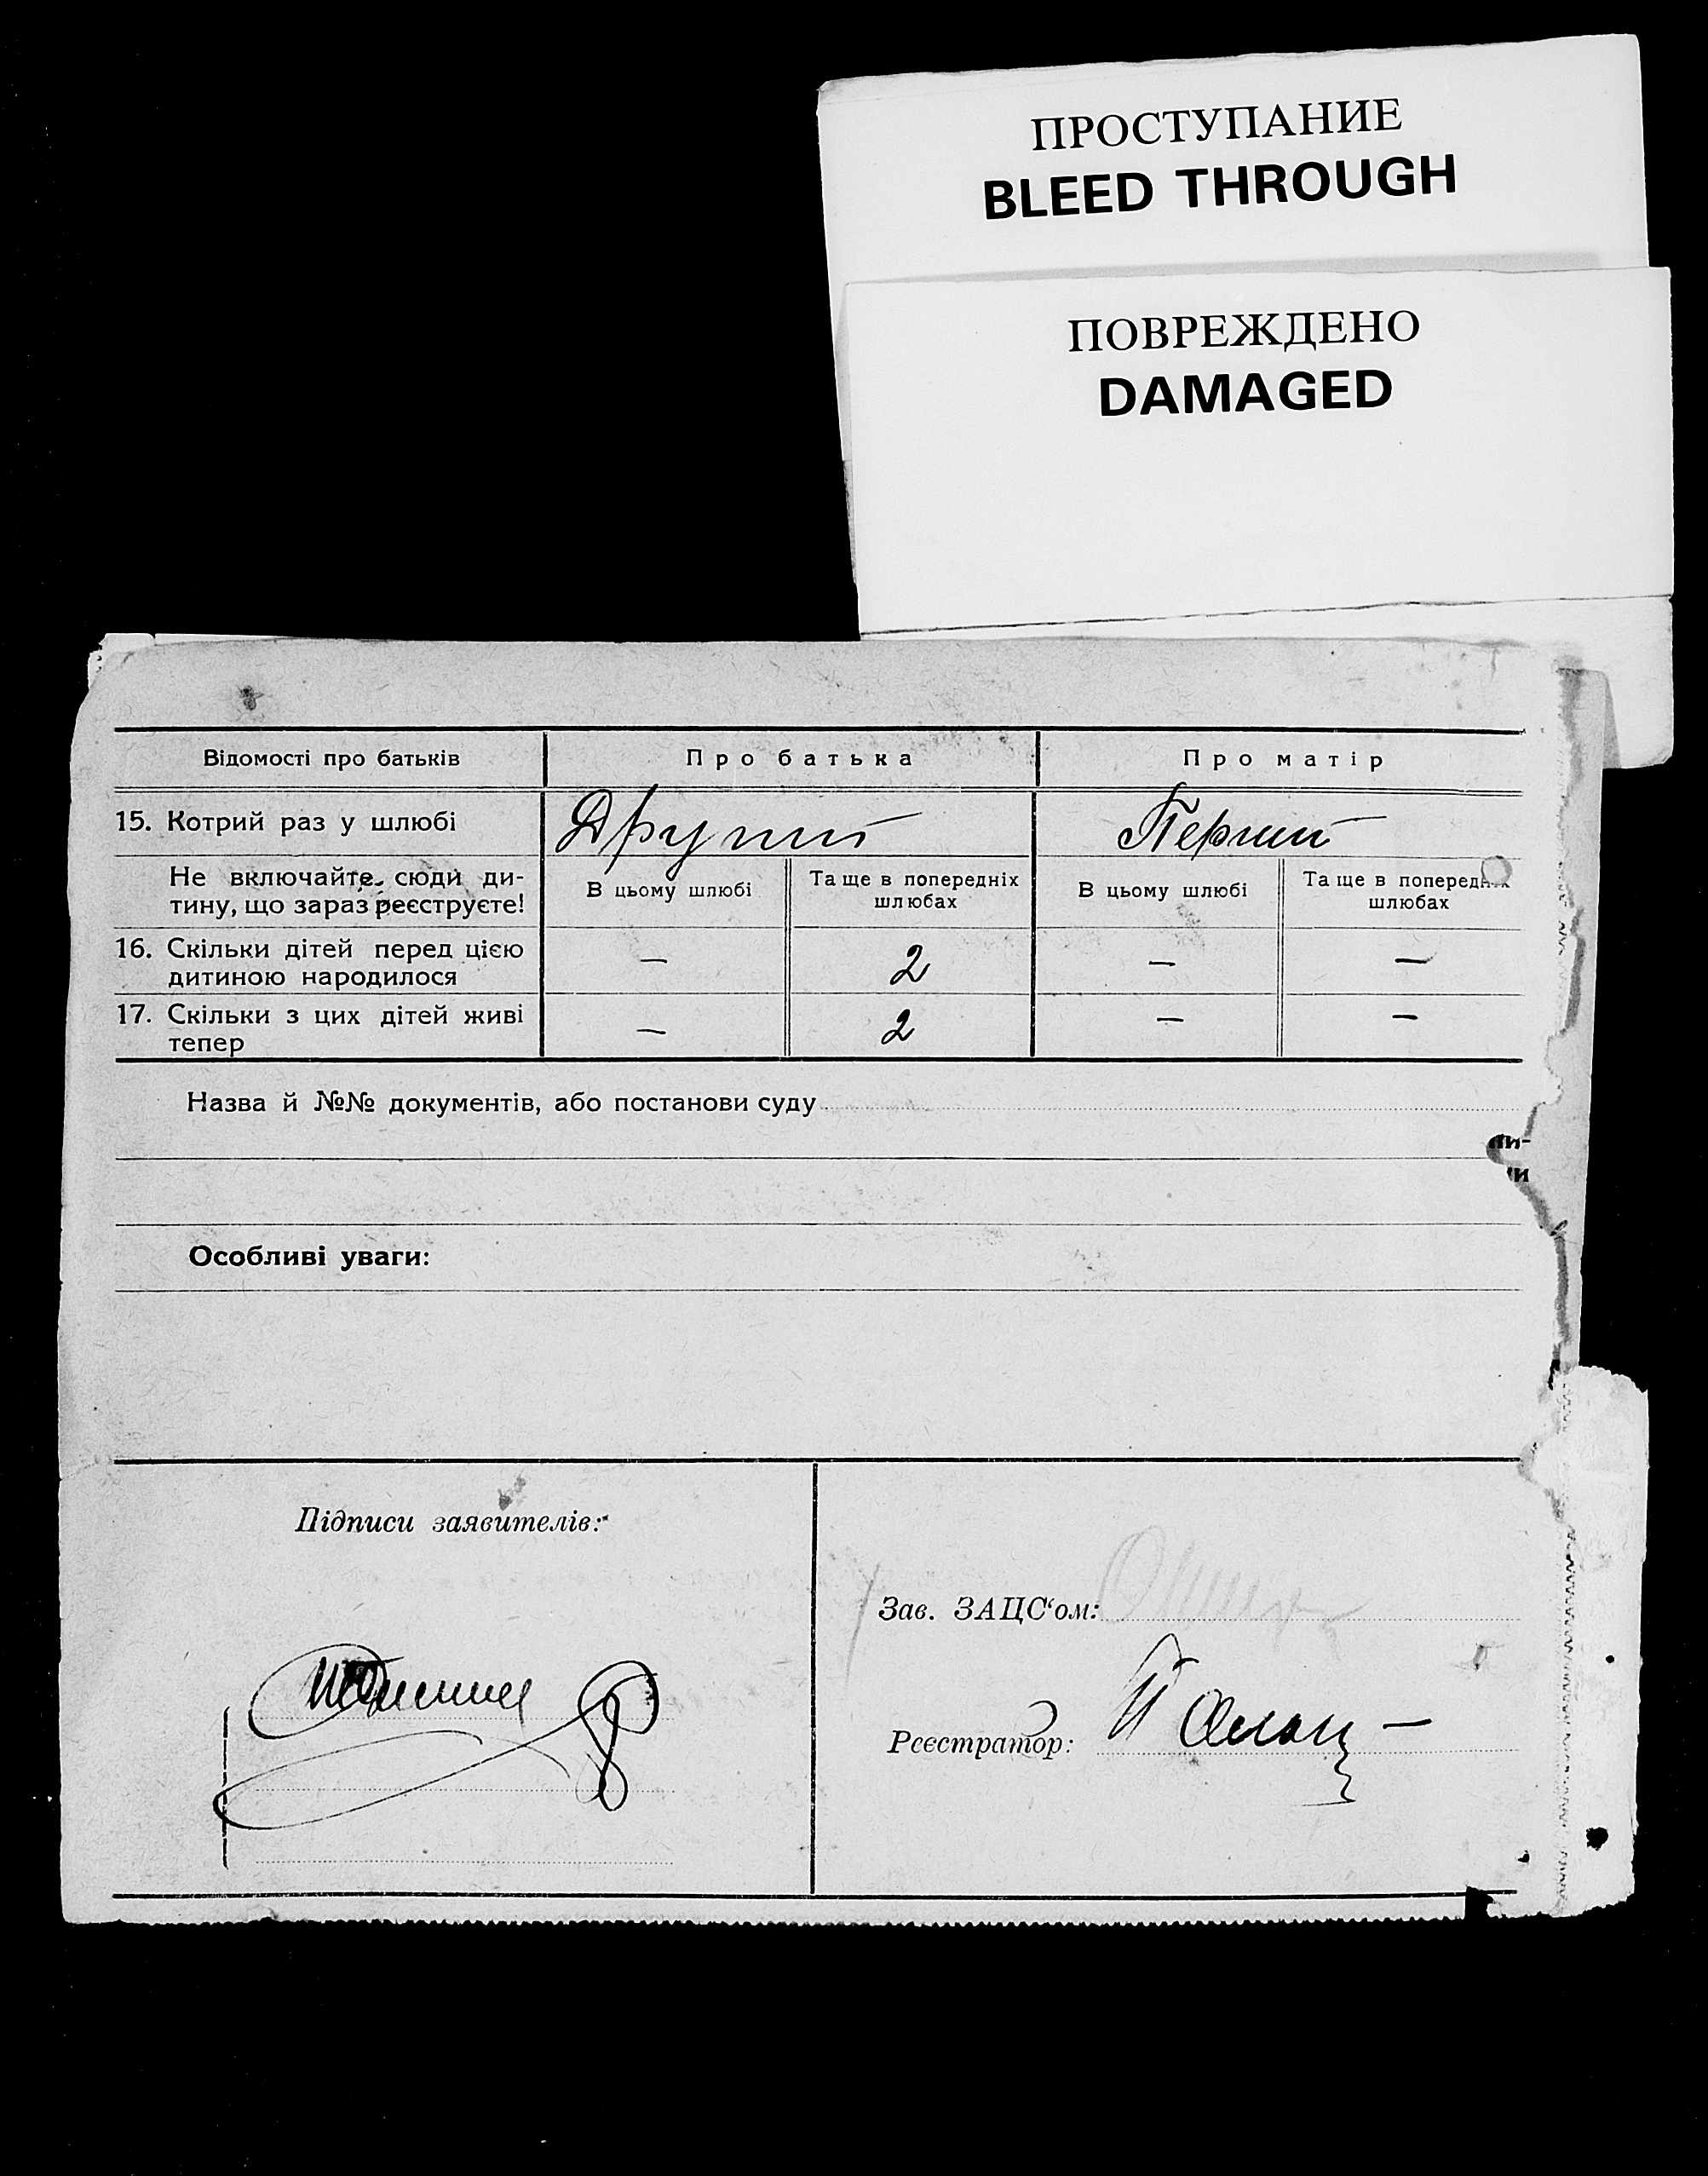 ПРОСТУПАНИЕ
BLEED THROUGH
ПОВРЕЖДЕНО
DAMAGED
Відомості про батьків
Про батька
Про матір
15. Котрий раз у шлюбі
Другий
Перший
Не включайте сюди ди-
тину, що зараз реєструєте!
В цьому шлюбі
Та ще в попередніх
шлюбах
В цьому шлюбі
Та ще в попередніх
шлюбах
16. Скільки дітей перед цією
дитиною народилося
—
2
—
—
17. Скільки з цих дітей живі
тепер
—
2
—
—
Назва й №№ документів, або постанови суду
ди-
ги
Особливі уваги:
Підписи заявителів:
Зав. ЗАЦС‘ом:
Реєстратор: